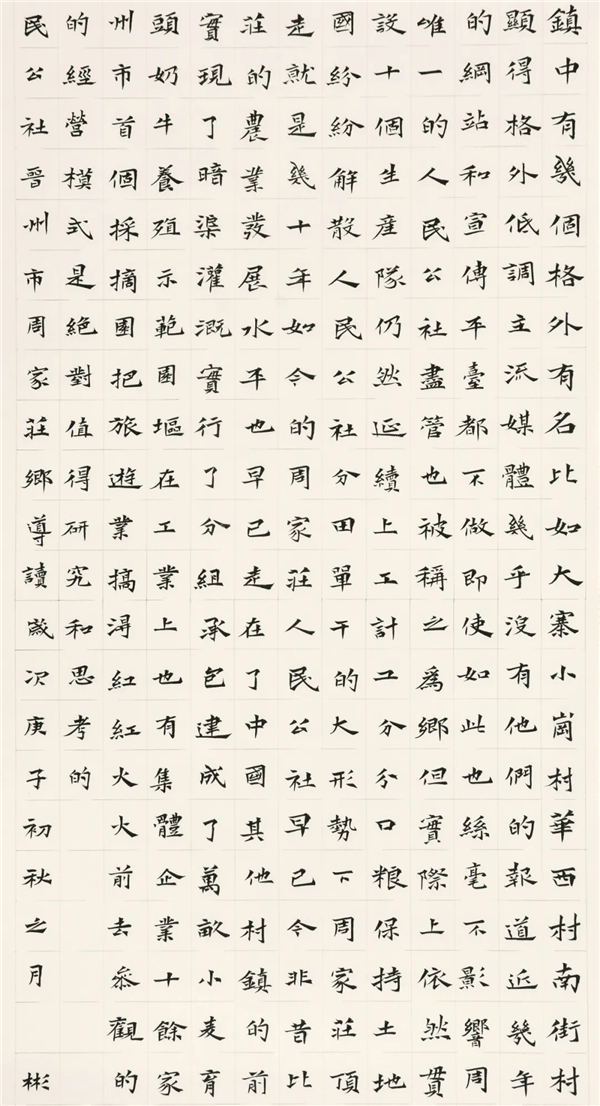 鎮中有幾個格外有名比如大寨小崗村華西村南街村
顯得格外低調主流媒體幾乎沒有他們的報道近幾年
的綱站和宣傳平臺都不做即使如此也絲毫不影響周
唯一的人民公社盡管也被稱之為鄉但實際上依然貫
設十個生產隊仍然延續上工計工分分口粮保持土地
國紛紛解散人民公社分田單干的大形勢下周家莊頂
走就是幾十年如今的周家莊人民公社早已今非昔比
莊的農業發展水平也早已走在了中國其他村鎮的前
實現了暗渠灌溉實行了分組承包建成了萬畝小麦育
頭奶牛養殖示範園區在工業上也有集體企業十餘家
州市首個採摘園把旅遊業搞得紅紅火火前去參觀的
的經營模式是絕對值得研究和思考的
民公社晉州市周家莊鄉導讀歲次庚子初秋之月 彬